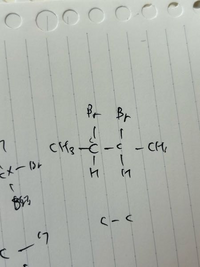 Br Br
CH₃ – C – C – CH₃
H H
C – Br
C – C
C –